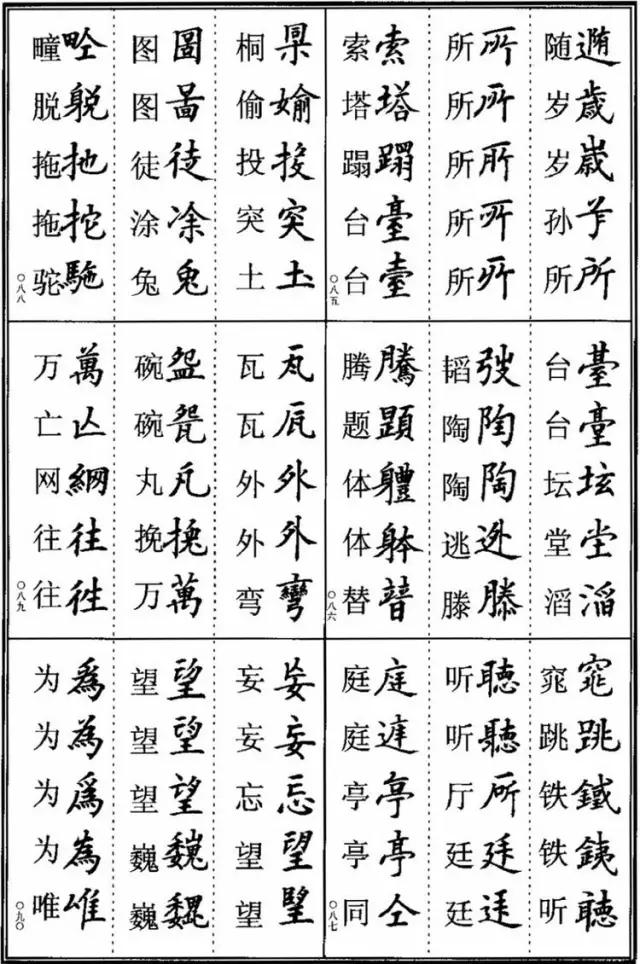 随
岁 歳
岁
孙
所 所
所 所
所 所
所
所
所
索 索
塔 塔
蹋 蹋
台 臺
台 臺
〇八五
台 臺
台 臺
坛 坛
堂 坣
滔 滔
韬 弢
陶 陶
陶 陶
逃 迯
滕 滕
腾 騰
题
体 軆
体 躰
替
〇八六
窕 窕
跳 跳
铁 鐵
铁 銕
听 聴
听 聽
听 聽
厅 所
廷 廷
廷
庭 庭
庭
亭 亭
亭 亭
同 仝
〇八七
桐
偷 媮
投 投
突 突
土 圡
图 圖
图
徒 徒
涂 凃
兔 兎
疃
脱 躮
拖 扡
拖 拕
驼 駞
〇八八
瓦 瓦
瓦
外 外
外 外
弯 彎
碗 盌
碗 㼝
丸
挽
万 萬
万 萬
亡 亾
网 網
往 往
往 徃
〇八九
妄 妄
妄 妄
忘 忘
望 望
望 朢
望 望
望 望
望 望
巍 巍
巍
为 爲
为 為
为 爲
为 為
唯 唯
〇九〇